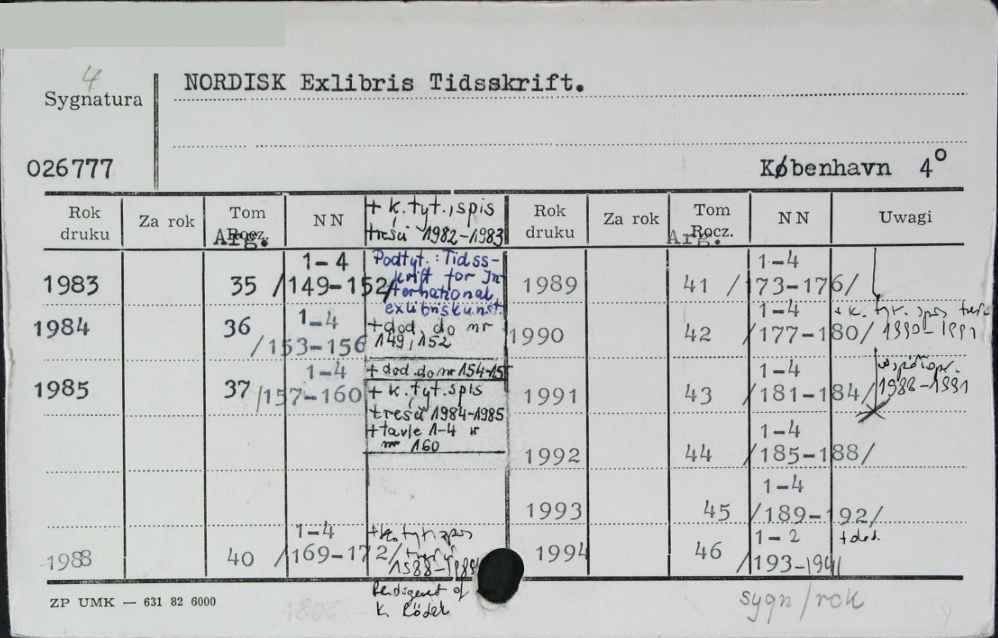 4
Sygnatura
NORDISK Exlibris Tidsskrift.
026777
København 4°
Rok druku Za rok Tom Rocz. Arg. NN + k. tyt., spis treści 1982-1983
Rok druku Za rok Tom Rocz. Arg. NN Uwagi
1983 35 1-4 /149-152/ Podtyt.: Tidsskrift for International exlibriskunst.
1984 36 1-4 /153-156 + dod. do nr 149, 152
+ dod. do nr 154-15
1985 37 1-4 /157-160 + k. tyt. spis treści 1984-1985
+ tavle 1-4 w nr 160
1988 40 1-4 /169-172/ + k. tyt. spis treści 1988-1989
Redigeret of K. Rödel
1989 41 1-4 /173-176/
1990 42 1-4 /177-180/ + k. tyt. spis treści 1990-1991
1991 43 1-4 /181-184/ współopr. 1988-1991
1992 44 1-4 /185-188/
1993 45 1-4 /189-192/
1994 46 1-2 /193-194/ + dod.
ZP UMK — 631 82 6000
sygn/rok